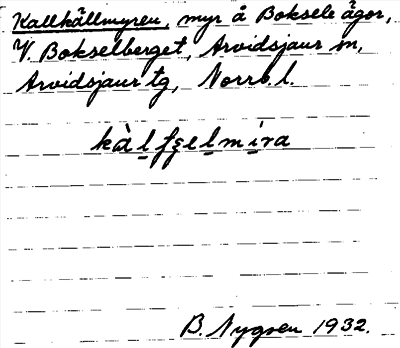 Kallkällmyren, myr å Boksele ägor,
V. Bokselberget, Arvidsjaur sn,
Arvidsjaur tg, Norrb. l.
kàlfɛelmíra
B. Nygren 1932.